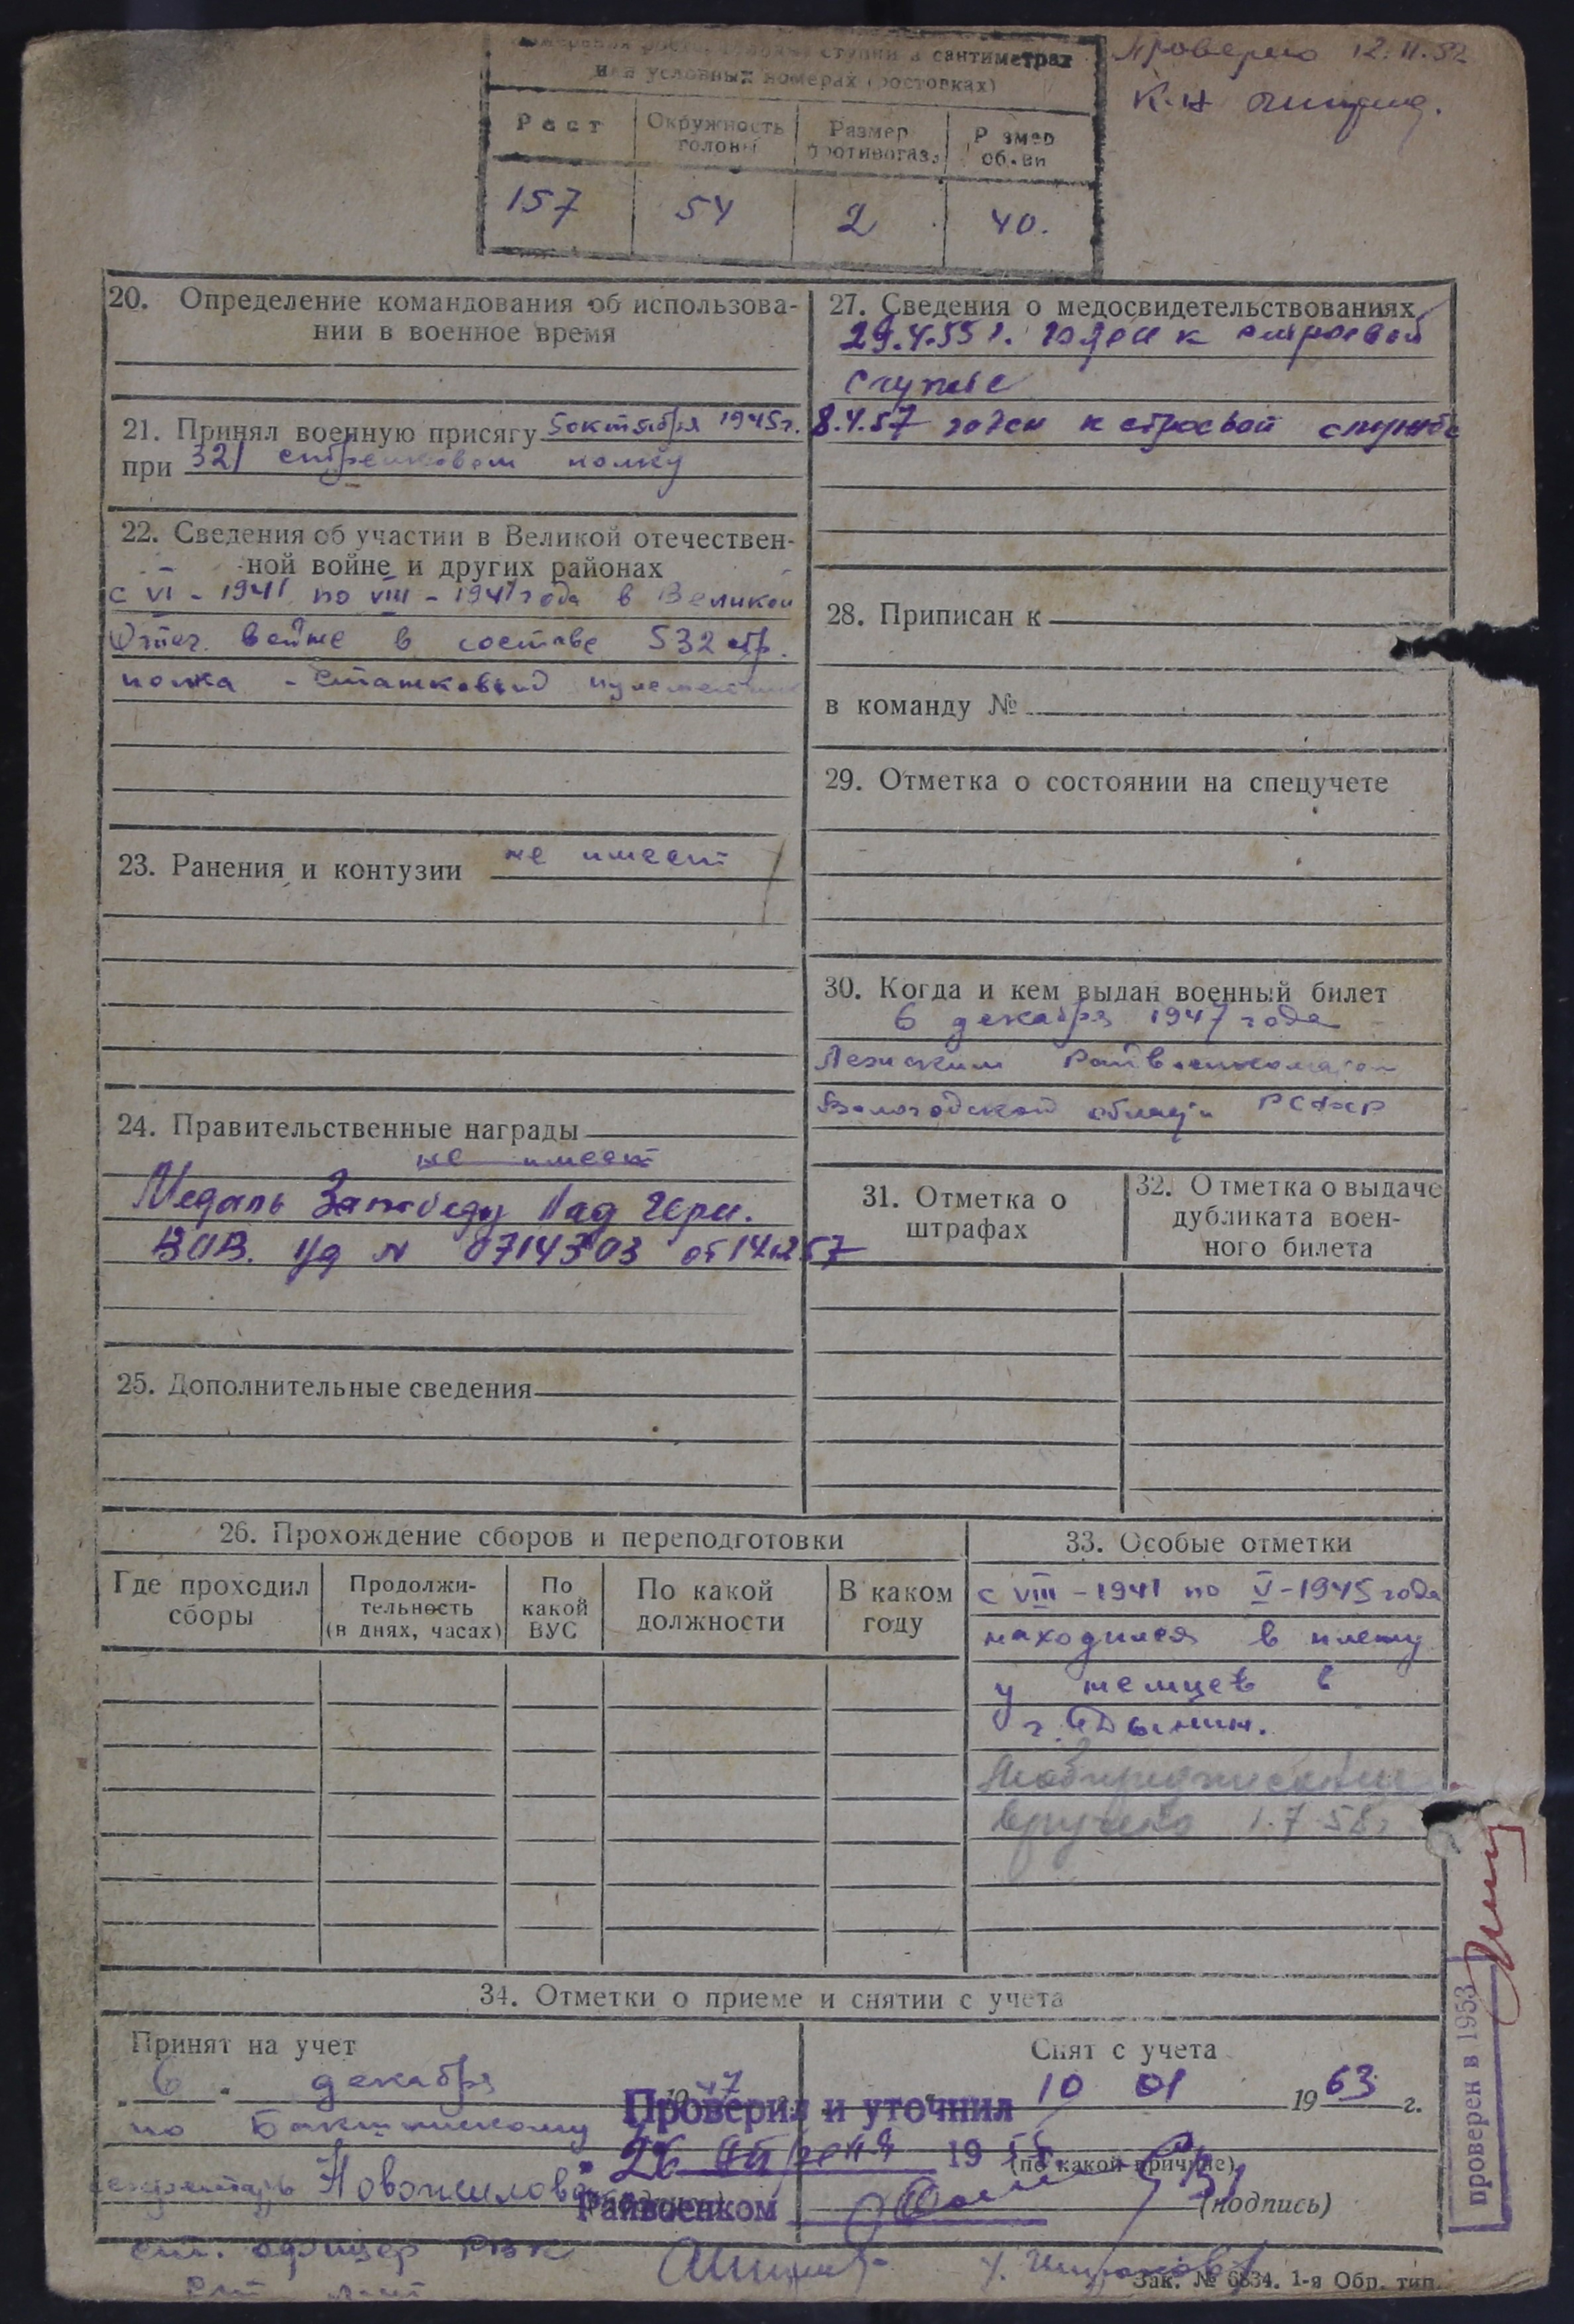 Проверено 12.11.52
измерения роста, головы, ступни в сантиметрах
или условных номерах (ростовках)
Рост Окружность головы Размер противогаза Размер обуви
157 54 2 40.
20. Определение командования об использова-
нии в военное время
21. Принял военную присягу 5 октября 1945г.
при 321 стрелковом полку
22. Сведения об участии в Великой отечествен-
ной войне и других районах
с VI - 1941 по VIII - 1941 года в Великой
Отеч. войне в составе 532 стр.
полка - станковый пулеметчик
23. Ранения и контузии не имеет
24. Правительственные награды
не имеет
Медаль За победу над Герм.
ВОВ. Уд N 0714303 от 14.12.57
25. Дополнительные сведения
27. Сведения о медосвидетельствованиях
29.4.55 г. годен к строевой
службе
8.4.57 годен к строевой службе
28. Приписан к
в команду №
29. Отметка о состоянии на спецучете
30. Когда и кем выдан военный билет
6 декабря 1947 года
Лежским Райвоенкоматом
Вологодской области РСФСР
31. Отметка о
штрафах
32. Отметка о выдаче
дубликата воен-
ного билета
26. Прохождение сборов и переподготовки
Где проходил
сборы
Продолжи-
тельность
(в днях, часах)
По
какой
ВУС
По какой
должности
В каком
году
33. Особые отметки
с VIII - 1941 по V - 1945 года
находился в плену
у немцев в
Мобпредписание
вручено 1.7.58г
34. Отметки о приеме и снятии с учета
Принят на учет
6 декабря 1947
по
секретарь Новожилова
ст. офицер РВК
Снят с учета
10 01 1963 г.
(по какой причине)
(подпись)
Проверил и уточнил
26 апреля 19
Райвоенком
проверен в 1953
Зак. № 6834. 1-я Обр. тип.